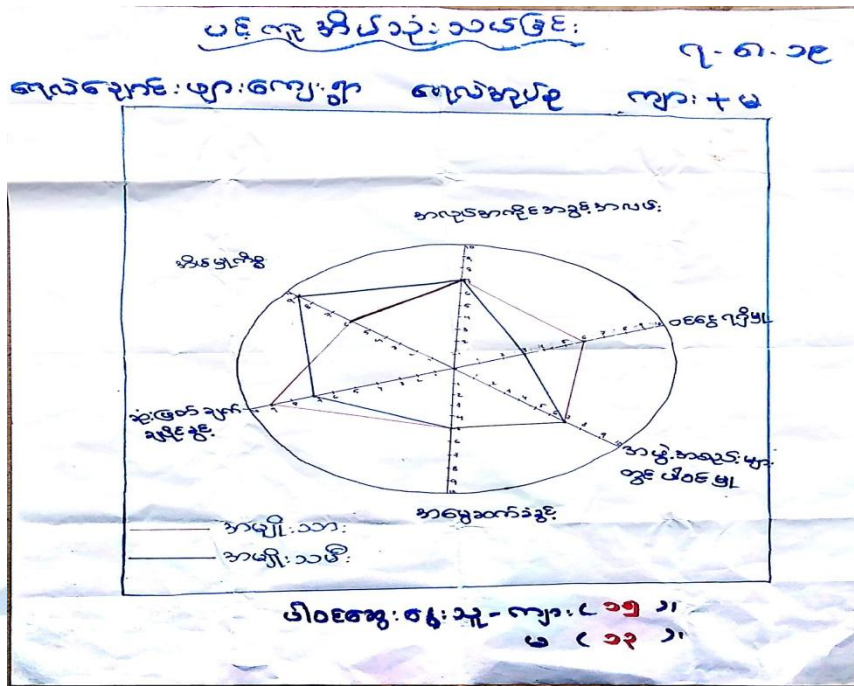 ပင့်ကူအိမ်သုံးသပ်ခြင်း
၇-၈-၁၉
ရေလဲချောင်းဖျားကျေးရွာ ရေလဲအုပ်စု ကျား + မ
အလုပ်အကိုင်အခွင့်အလမ်း
အိမ်မှုကိစ္စ
ဝင်ငွေရရှိမှု
ဆုံးဖြတ်ချက်
ချပိုင်ခွင့်
အဖွဲ့အစည်းများ
တွင် ပါဝင်မှု
အမွေဆက်ခံခွင့်
အမျိုးသား
အမျိုးသမီး
ပါဝင်ဆွေးနွေးသူ - ကျား ( ၁၅ )။
မ ( ၁၃ )။